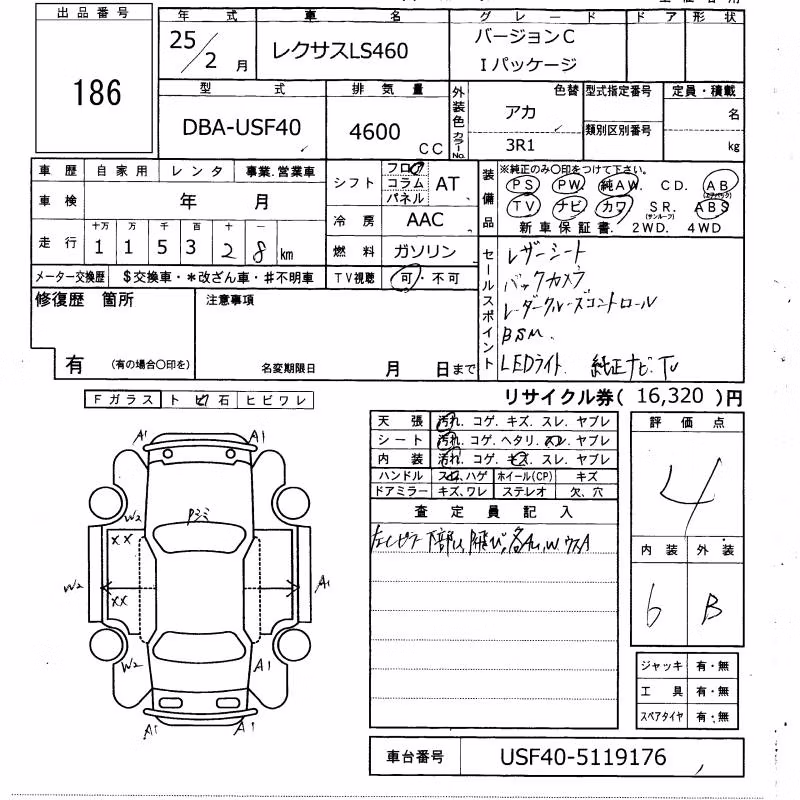 出品番号
186
年 式
25/2 月
車 名
レクサスLS460
グレード
バージョンC
Iパッケージ
ドア 形状
型 式
DBA-USF40
排気量
4600 CC
外装色 カラーNo.
色替
アカ
3R1
型式指定番号
類別区別番号
定員・積載
名
kg
車歴 自家用 レンタ 事業.営業車
車検 年 月
走行 十万 万 千 百 十 一
1 1 5 3 2 8 km
メーター交換歴 $交換車・*改ざん車・#不明車
シフト フロア コラム パネル AT
冷房 AAC
燃料 ガソリン
TV視聴 可・不可
装備品
※純正のみ○印をつけて下さい。
PS PW. 純AW. CD. AB (エアバック)
TV ナビ カワ SR. (サンルーフ) ABS
新車保証書. 2WD. 4WD
セールスポイント
レザーシート
バックカメラ
レーダークルーズコントロール
BSM.
LEDライト. 純正ナビ.TV
修復歴 箇所
有 (有の場合○印を)
注意事項
名変期限日 月 日まで
リサイクル券( 16,320 )円
Fガラス トビ石 ヒビワレ
天張 汚れ. コゲ. キズ. スレ. ヤブレ
シート 汚れ. コゲ. ヘタリ. スレ. ヤブレ
内装 汚れ. コゲ. キズ. スレ. ヤブレ
ハンドル スレ、ハゲ ホイール(CP) キズ
ドアミラー キズ、ワレ ステレオ 欠、穴
査定員記入
評価点
4
内装 外装
6 B
A1 A1
W2
XX
W2 A1
XX
W2 A1
A1 A1
ジャッキ 有・無
工具 有・無
スペアタイヤ 有・無
車台番号 USF40-5119176